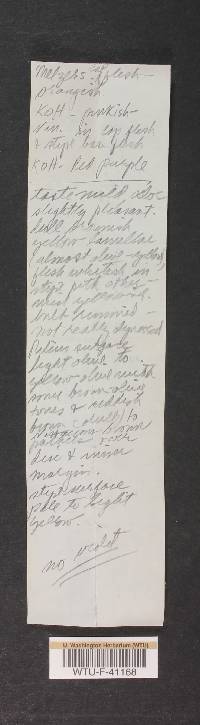 Melzers cap flesh -
orangish
KOH - pinkish -
vin. in cap flesh
& stipe base flesh
KOH - Red purple
taste mild odor
slightly pleasant.
dull brownish
yellow lamellae
(almost olive-yellow)
flesh whitish in
stipe pith other-
wise yellowish.
bulb rimmed -
not really depressed
Pileus surface
light olive to
yellow olive with
some brown olive
tones & reddish
brown (dull) to
brown
patches over
disc & inner
margin.
stipe surface
pale to light
yellow.
no violet
U. Washington Herbarium (WTU)
WTU-F-41168